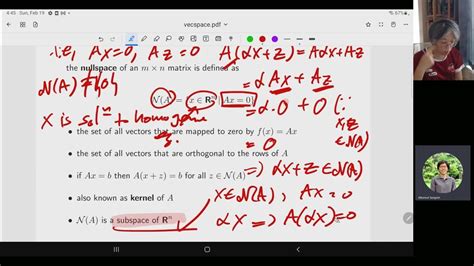 4:45 Sun, Feb 19
vecspace.pdf
i.e, Ax=0, Az=0 A(αx+z)=Aαx+Az
the nullspace of an m × n matrix is defined as
N(A) ≠ {0}
= αAx + Az
N(A) = {x ∈ Rⁿ | Ax = 0}
= α.0 + 0 (∵
x is solⁿ to homogine
x,z
∈ N(A)
• the set of all vectors that are mapped to zero by f(x) = Ax
= 0
• the set of all vectors that are orthogonal to the rows of A
⇒ αx+z ∈ N(A)
• if Ax = b then A(x + z) = b for all z ∈ N(A)
x ∈ N(A), Ax = 0
• also known as kernel of A
αx ⇒ A(αx)=0
• N(A) is a subspace of Rⁿ